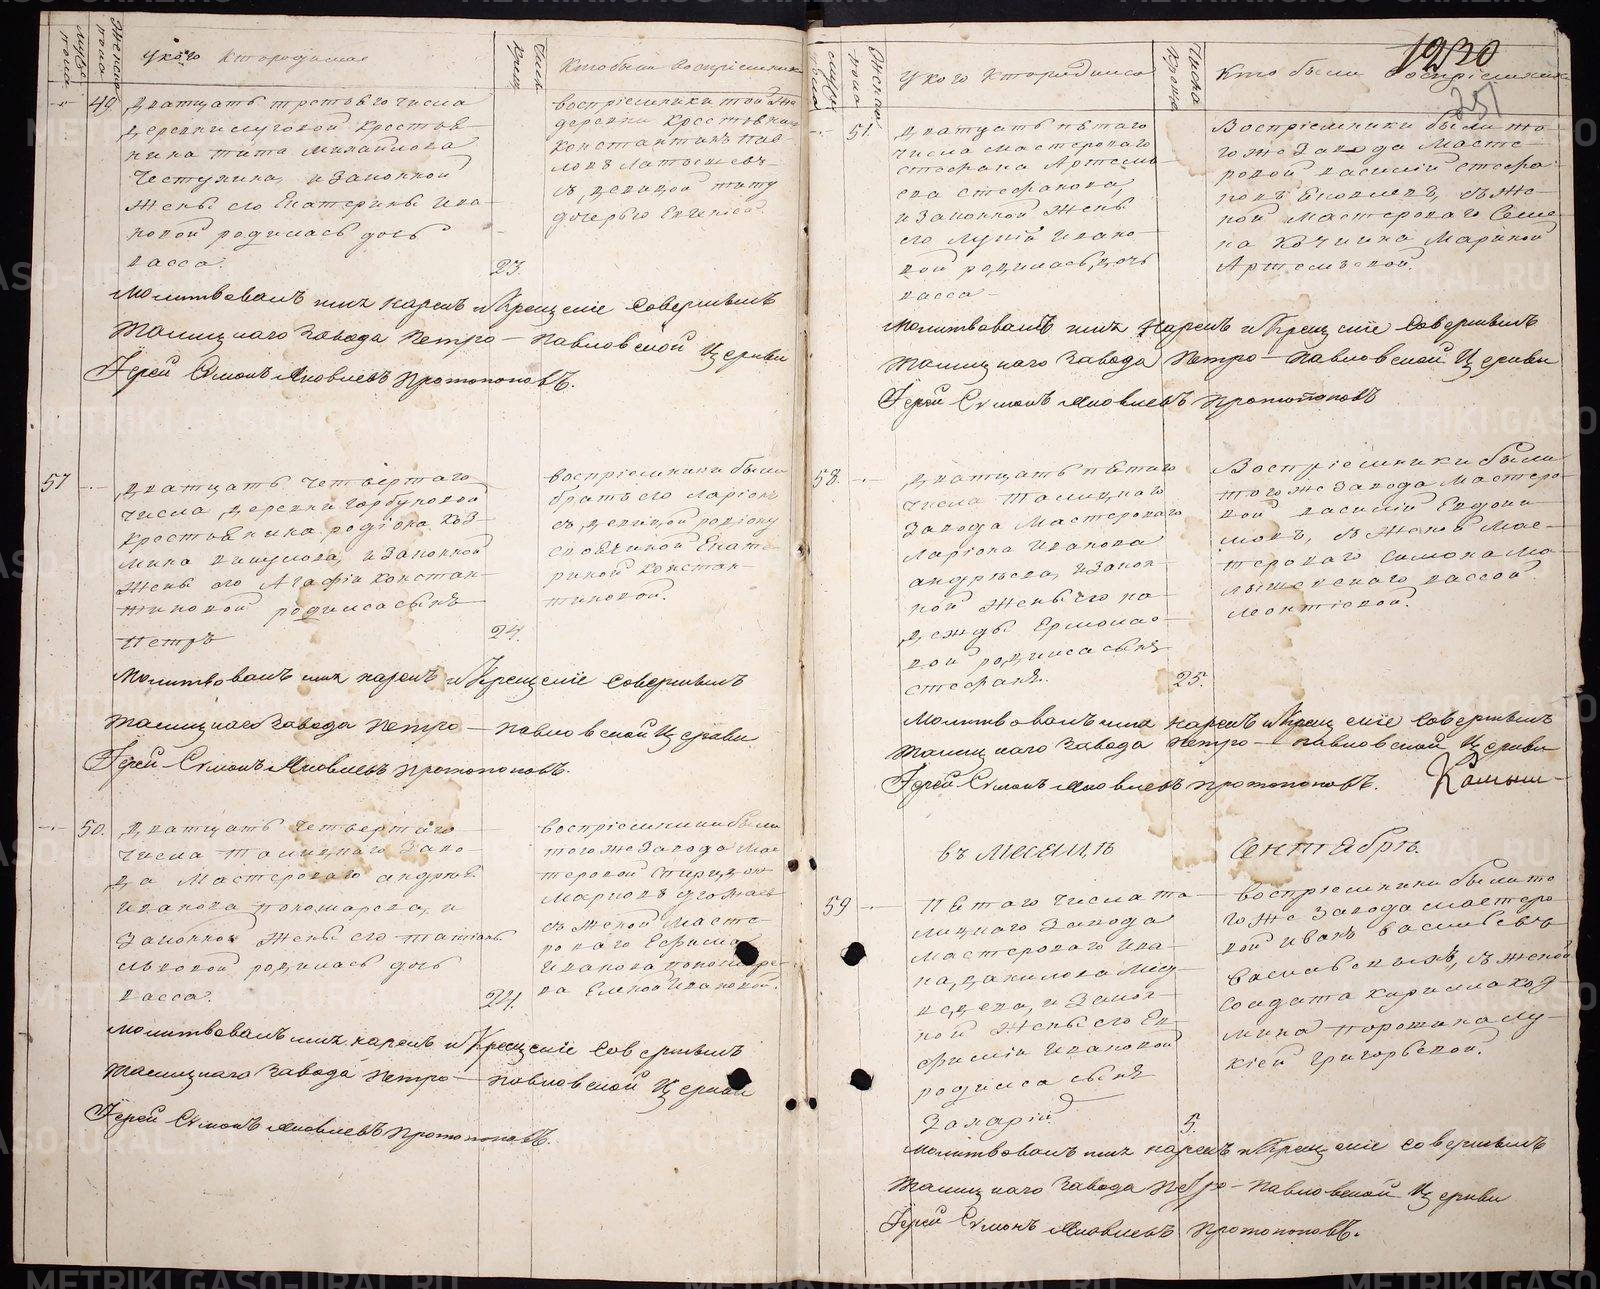 Мужска пола
Женска пола
У кого кто родился
Числа крещ.
Кто были восприемники
49
дватцать третьяго числа
деревни луговой крестья
нина Тита Михайлова
Честупина, и Законной
жены его Екатерины Ива
новой родилась дочь
васса.
23.
восприемники той же
деревни крестьянин
Константинъ Пав
ловъ
з девицой титу
дочерью
Молитвовалъ имя нарекъ и Крещение совершилъ
Талицкаго Завода Петро-Павловской Церкви
Іерей Симонъ Яковлевъ Протопоповъ.
57
дватцать четвертаго
числа деревни горбуновой
крестьянина родіона коз
мина викулова, и Законной
жены его Агафіи констан
тиновой родился сынъ
Петръ
24.
восприемники были
братъ его ларіонъ
съ девицой родіону
своячиной Екате
риной констан
тиновой.
Молитвовалъ имя нарекъ и Крещение совершилъ
Талицкаго Завода Петро-Павловской Церкви
Іерей Симонъ Яковлевъ Протопоповъ.
50.
дватцать четвертаго
числа талицкаго Заво
да Мастероваго андрея
Иванова пономарева, и
Законной жены его татіаны
родилась дочь
васса.
24.
восприемники были
того же Завода Мас
теровой Спиридонъ
Марковъ
съ женой Масте
роваго Ефима
Иванова пономаре
ва Еленой Ивановой.
Молитвовалъ имя нарекъ и Крещение совершилъ
Талицкаго Завода Петро-Павловской Церкви
Іерей Симонъ Яковлевъ Протопоповъ.
1230
251
Мужска пола
Женской пола
У кого кто родился
Числа крещ
Кто были восприемники
51.
дватцать пятаго
числа мастероваго
стефана Артемь
ева стефанова,
и Законной жены
его лукіи Ивано
вой родилась дочь
васса
Восприемники были то
го же Завода Масте
ровой василій стефа
новъ Яковлевъ, съ же
ной мастероваго Семе
на Кочнина Мариной
Артемьевой.
Молитвовалъ имя нарекъ и Крещение совершилъ
Талицкаго Завода Петро-Павловской Церкви
Іерей Симонъ Яковлевъ Протопоповъ
58.
дватцать пятаго
числа талицкаго
Завода Мастероваго
ларіона Иванова
андреева, и Закон
ной жены его на
дежды Ермолае
вой родился сынъ
стефанъ.
25.
Восприемники были
того же Завода Мастеро
вой василій Евдоки
мовъ, съ женой Мас
тероваго симона Ма
лышевскаго вассой
леонтіевой.
Молитвовалъ имя нарекъ и Крещение совершилъ
Талицкаго Завода Петро-Павловской Церкви
Іерей Симонъ Яковлевъ Протопоповъ.
Камыш-
въ Месяцъ Сентябрь.
59
Пятаго числа та
лицкаго Завода
мастероваго Ива
на, данилова Мед
ведева, и Закон
ной жены его Ев
фиміи Ивановой
родился сынъ
Захарій
5.
восприемники были то
го же Завода мастеро
вой Иванъ васильевъ
съ женой
солдата кирилла коз
мина порошина Лу
кіей григорьевой.
Молитвовалъ имя нарекъ и Крещение совершилъ
Талицкаго Завода Петро-Павловской Церкви
Іерей Симонъ Яковлевъ Протопоповъ.
METRIKI.GASO-URAL.RU